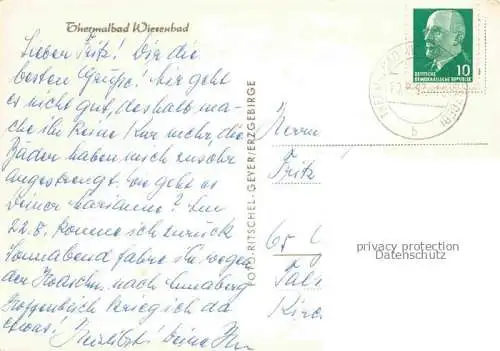 Thermalbad Wiesenbad
Lieber Fritz! Dir die
besten Grüße! Mir geht
es nicht gut, deshalb ma-
che ich keine Kur mehr, die
Bäder haben mich zu sehr
angestrengt. Wie geht es
Deiner Marianne? Am
22.8. komme ich zurück
Sonnabend fahre ich wegen
der nach Annaberg
Hoffentlich kriege ich da
etwas! Herzlichst Deine
FOTO-RITSCHEL-GEYER/ERZGEBIRGE
DEUTSCHE
DEMOKRATISCHE REPUBLIK
10
b
Herrn
Fritz
65
privacy protection
Datenschutz